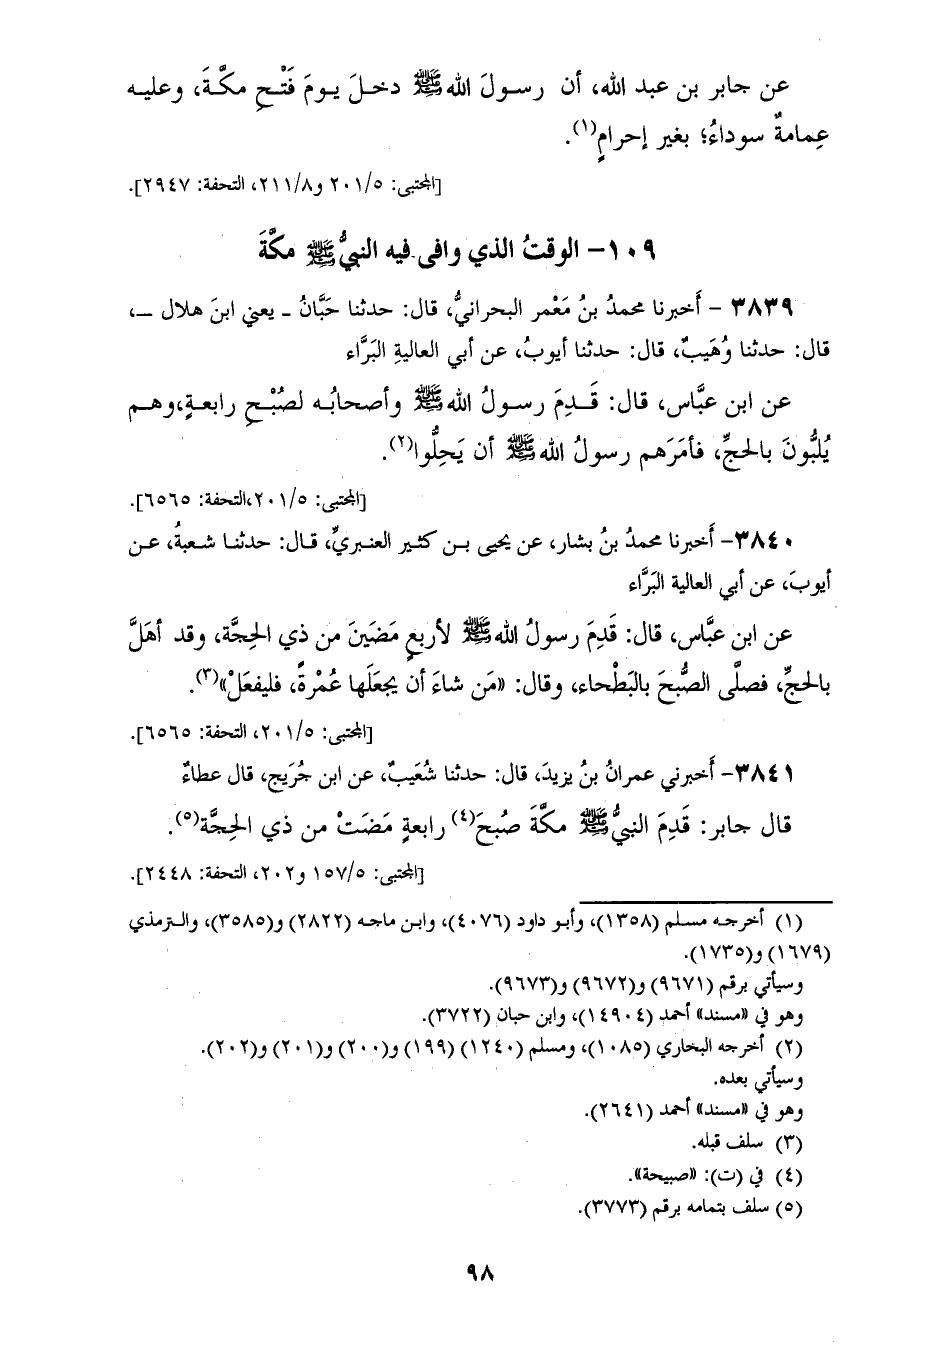 عن جابر بن عبد الله، أن رسولَ الله ﷺ دخلَ يومَ فَتْحِ مكَّةَ، وعليه
عِمامةٌ سوداءُ؛ بغير إحرامٍ(١).
[المجتبى: ٢٠١/٥ و٢١١/٨، التحفة: ٢٩٤٧].
١٠٩- الوقتُ الذي وافى فيه النبيُّ ﷺ مكَّةَ
٣٨٣٩ - أَخبرنا محمدُ بنُ مَعْمر البحرانيُّ، قال: حدثنا حَبَّانُ ـ يعني ابنَ هلال ـ،
قال: حدثنا وُهَيبٌ، قال: حدثنا أيوبُ، عن أبي العاليةِ البَرَّاء
عن ابن عبَّاس، قال: قَدِمَ رسولُ الله ﷺ وأصحابُه لصُبْحِ رابعةٍ،وهم
يُلبُّونَ بالحجِّ، فأمَرَهم رسولُ الله ﷺ أن يَحِلُّوا(٢).
[المجتبى: ٢٠١/٥،التحفة: ٦٥٦٥].
٣٨٤٠- أَخبرنا محمدُ بنُ بشار، عن يحيى بن كثير العنبريِّ، قال: حدثنا شعبةُ، عن
أيوبَ، عن أبي العالية البَرَّاء
عن ابن عبَّاس، قال: قَدِمَ رسولُ الله ﷺ لأربعٍ مَضَينَ من ذي الحِجَّة، وقد أهَلَّ
بالحجِّ، فصلَّى الصُّبحَ بالبَطْحاء، وقال: «مَن شاءَ أن يجعَلَها عُمْرةً، فليفعَلْ»(٣).
[المجتبى: ٢٠١/٥، التحفة: ٦٥٦٥].
٣٨٤١- أَخبرني عمرانُ بنُ يزيدَ، قال: حدثنا شُعَيبٌ، عن ابن جُرَيج، قال عطاءٌ
قال جابر: قَدِمَ النبيُّ ﷺ مكَّةَ صُبحَ(٤) رابعةٍ مضَتْ من ذي الحِجَّة(٥).
[المجتبى: ١٥٧/٥ و٢٠٢، التحفة: ٢٤٤٨].
(١) أخرجه مسلم (١٣٥٨)، وأبو داود (٤٠٧٦)، وابن ماجه (٢٨٢٢) و(٣٥٨٥)، والترمذي
(١٦٧٩) و(١٧٣٥).
وسيأتي برقم (٩٦٧١) و(٩٦٧٢) و(٩٦٧٣).
وهو في «مسند» أحمد (١٤٩٠٤)، وابن حبان (٣٧٢٢).
(٢) أخرجه البخاري (١٠٨٥)، ومسلم (١٢٤٠) (١٩٩) و(٢٠٠) و(٢٠١) و(٢٠٢).
وسيأتي بعده.
وهو في «مسند» أحمد (٢٦٤١).
(٣) سلف قبله.
(٤) في (ت): «صبيحة».
(٥) سلف بتمامه برقم (٣٧٧٣).
٩٨